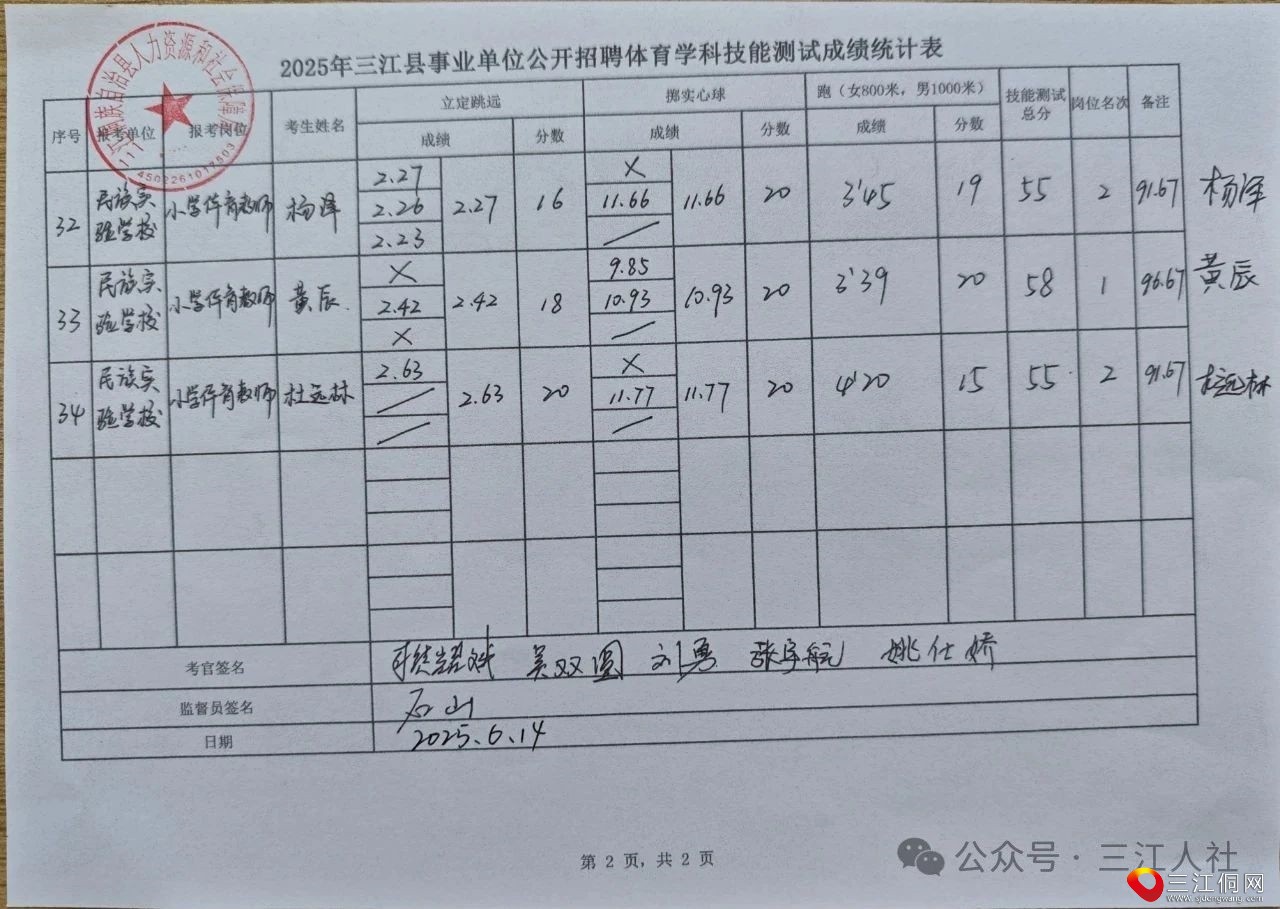 2025年三江县事业单位公开招聘体育学科技能测试成绩统计表
序号 报考单位 报考岗位 考生姓名 立定跳远 掷实心球 跑（女800米，男1000米） 技能测试总分 岗位名次 备注
成绩 分数 成绩 分数 成绩 分数
32 民族实验学校 小学体育教师 杨泽 2.27 2.26 2.23 2.27 16 X 11.66 / 11.66 20 3'45 19 55 2 91.67 杨泽
33 民族实验学校 小学体育教师 黄辰 X 2.42 X 2.42 18 9.85 10.93 / 10.93 20 3'39 20 58 1 96.67 黄辰
34 民族实验学校 小学体育教师 杜远林 2.63 / / 2.63 20 X 11.77 / 11.77 20 4'20 15 55 2 91.67 杜远林
考官签名 吴双圆 刘勇 张宇航 姚仕娇
监督员签名 石山
日期 2025.6.14
第 2 页，共 2 页
族自治县人力资源和社会保障
4502261017503
公众号 · 三江人社
三江侗网
www.sjdongwang.com